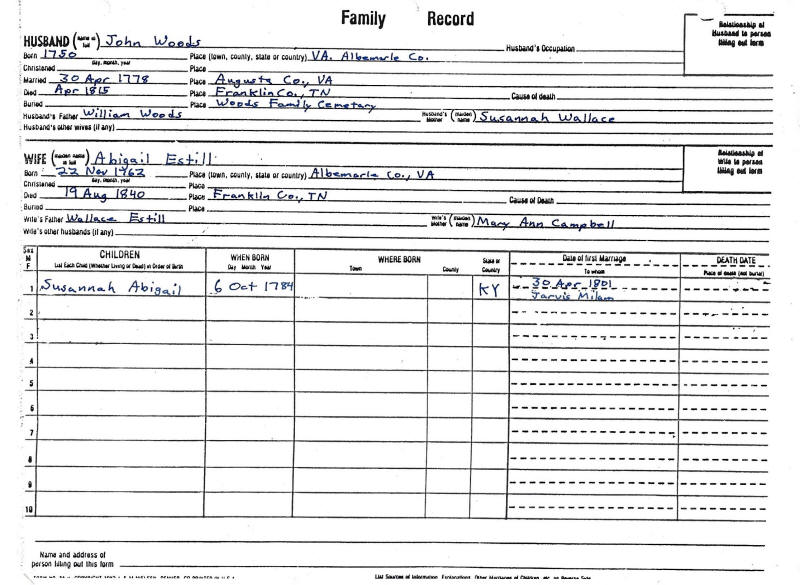 Family Record
Relationship of Husband to person filling out form
HUSBAND (name in full) John Woods Husband's Occupation
Born 1750 Place (town, county, state or country) VA. Albemarle Co.
day, month, year
Christened Place
Married 30 Apr 1778 Place Augusta Co., VA
Died Apr 1815 Place Franklin Co., TN Cause of death
Buried Place Woods Family Cemetary
Husband's Father William Woods Husband's Mother (maiden name) Susannah Wallace
Husband's other wives (if any)
Relationship of Wife to person filling out form
WIFE (maiden name in full) Abigail Estill
Born 22 Nov 1762 Place (town, county, state or country) Albemarle Co., VA
day, month, year
Christened Place
Died 19 Aug 1840 Place Franklin Co., TN Cause of Death
Buried Place
Wife's Father Wallace Estill Wife's Mother (maiden name) Mary Ann Campbell
Wife's other husbands (if any)
Sex M F CHILDREN WHEN BORN WHERE BORN State or Country Date of first Marriage DEATH DATE
List Each Child (Whether Living or Dead) in Order of Birth Day Month Year Town County To whom Place of death (not burial)
1 Susannah Abigail 6 Oct 1784 KY 30 Apr 1801
Jarvis Milam
2
3
4
5
6
7
8
9
10
Name and address of
person filling out this form
List Sources of Information, Explanations, Other Marriages of Children, etc. on Reverse Side